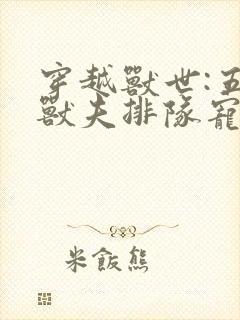 穿越獸世:五
獸夫排隊寵
米飯熊